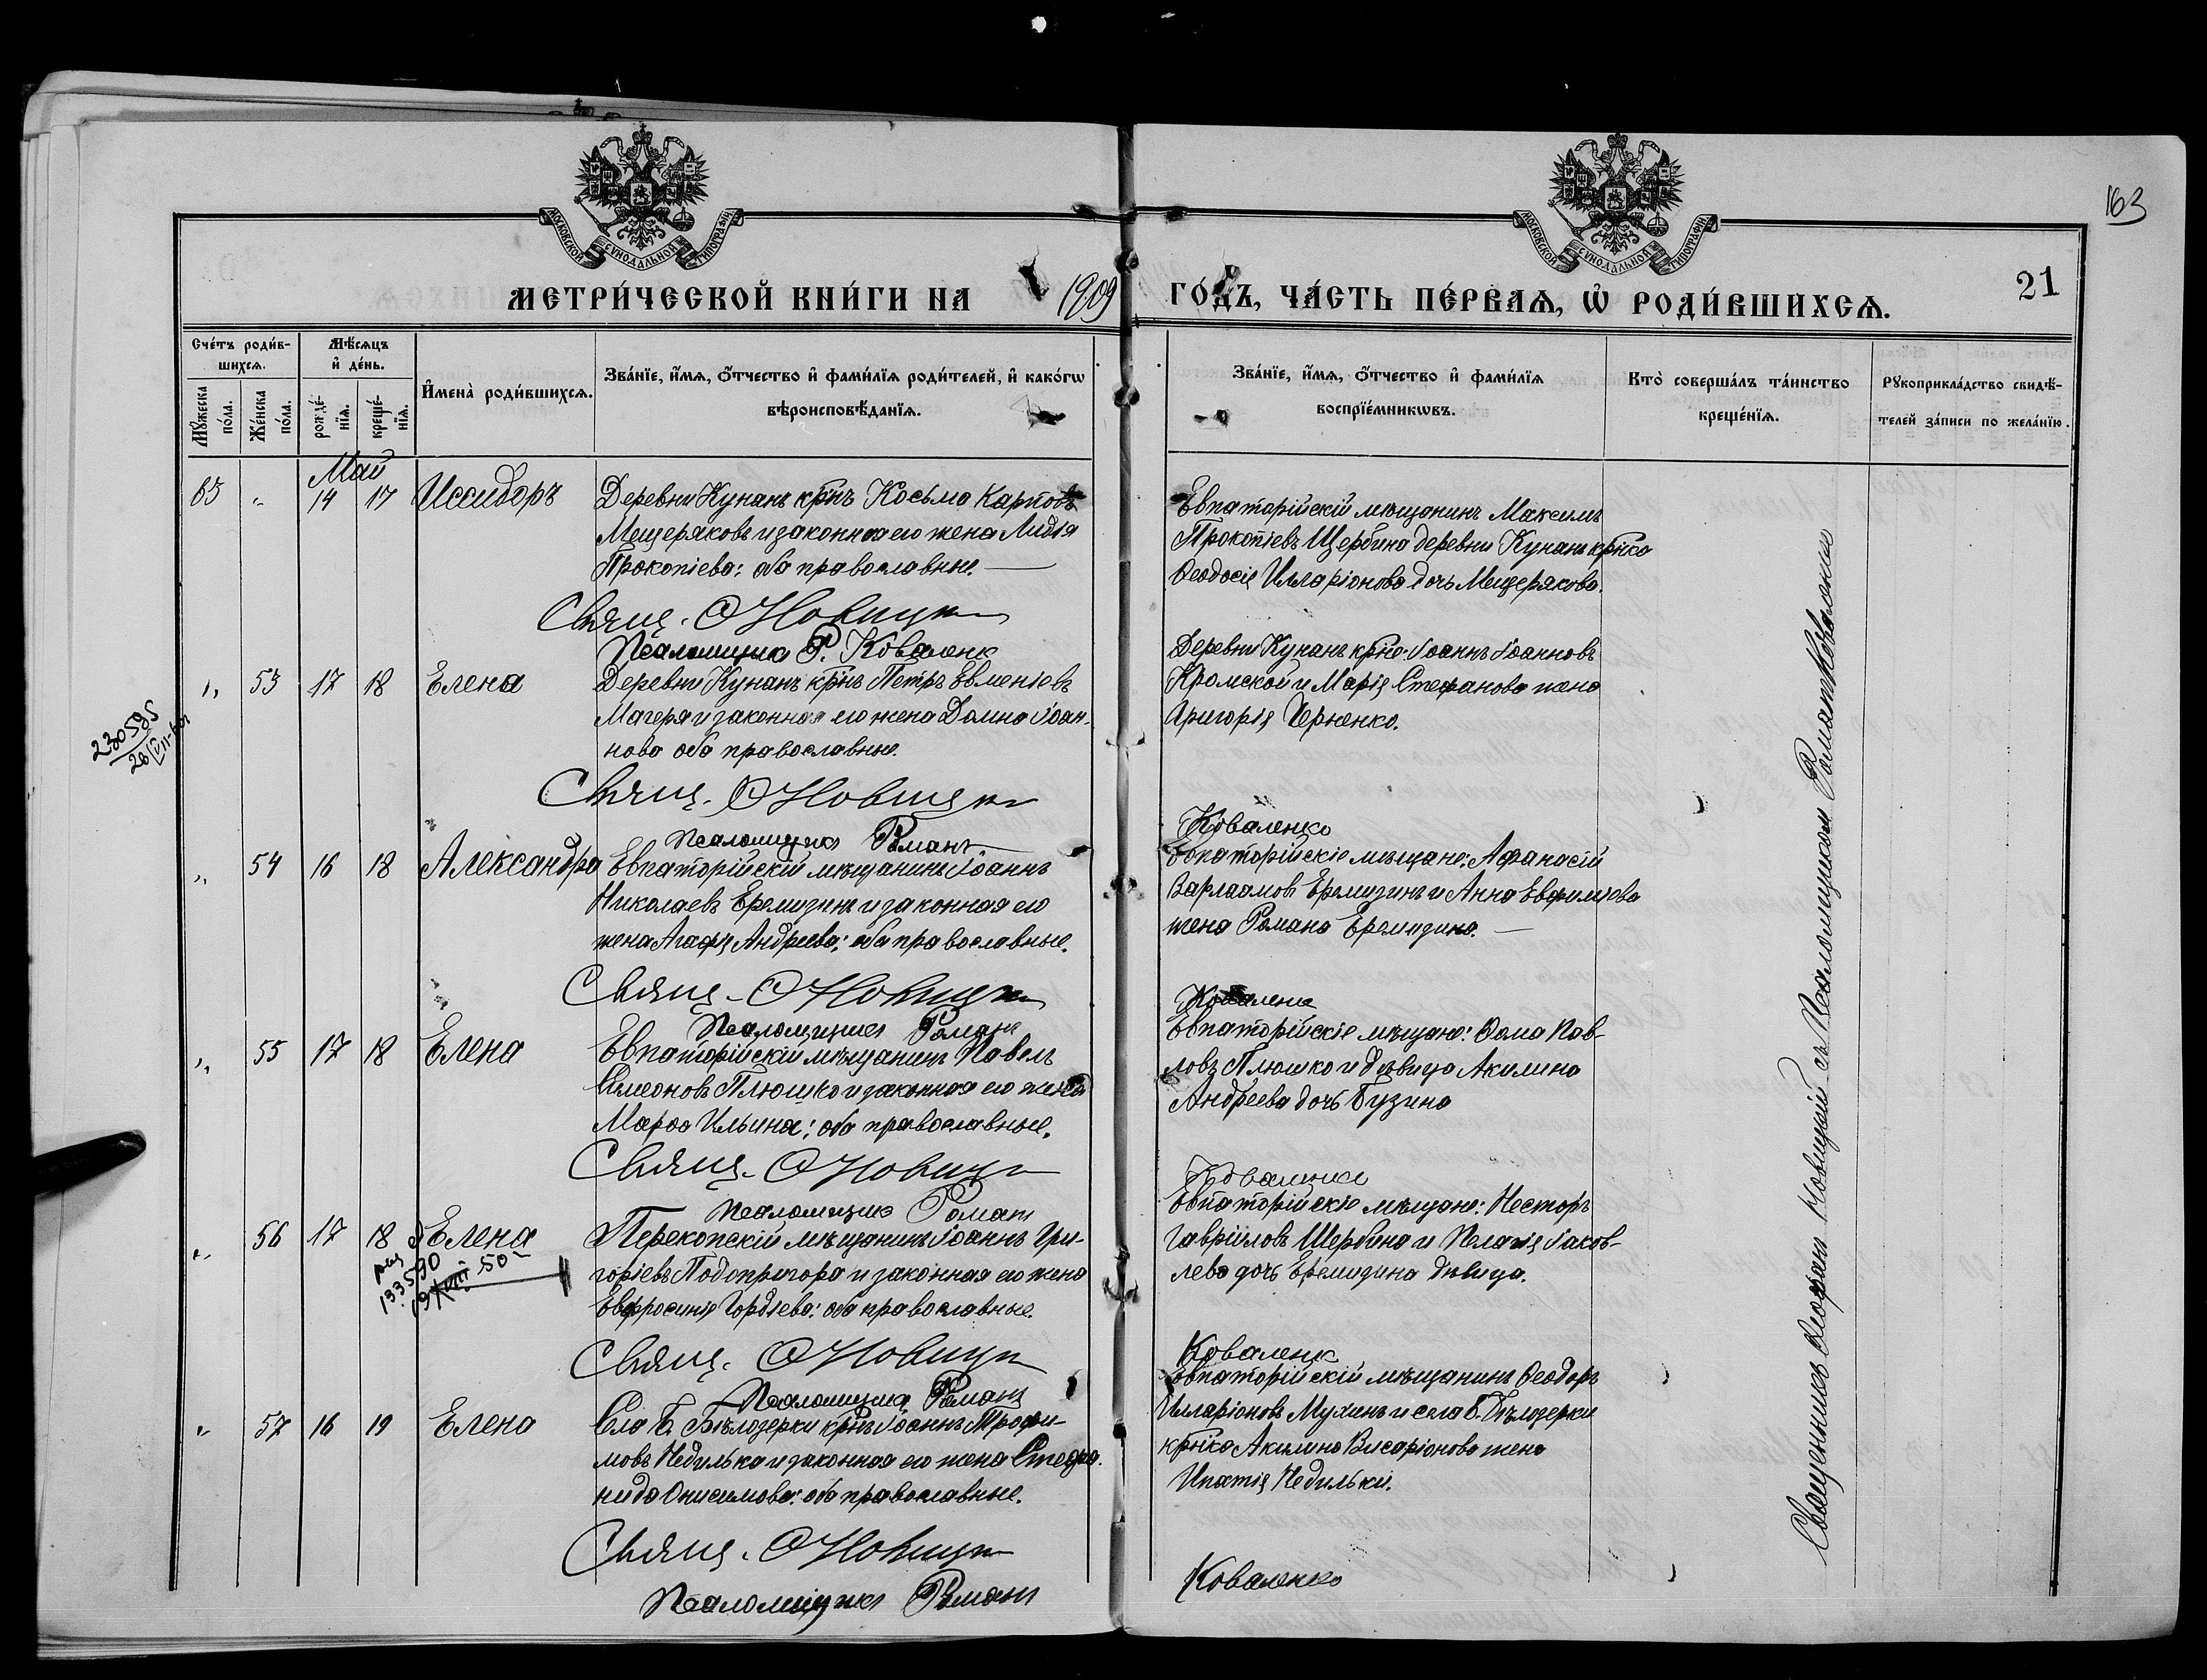 163
МОСКОВСКОЙ СУНОДАЛЬНОЙ ТИПОГРАФІИ
МОСКОВСКОЙ СУНОДАЛЬНОЙ ТИПОГРАФІИ
МЕТРИ́ЧЕСКОЙ КНИ́ГИ НА 1909 ГО́ДЪ, ЧА́СТЬ ПЕ́РВАѦ, Ѡ҆ РОДИ́ВШИХСѦ.
21
Сче́тъ роди́в-
шихсѧ.
Мꙋ́жеска по́ла.
Же́нска по́ла.
Мѣ́сѧцъ
и҆ де́нь.
рожде́-
нїѧ.
креще́-
нїѧ.
И҆мена̀ роди́вшихсѧ.
Зва́нїе, и҆́мѧ, ѻ҆́тчество и҆ фами́лїѧ роди́телей, и҆ како́гѡ
вѣроисповѣ́данїѧ.
Зва́нїе, и҆́мѧ, ѻ҆́тчество и҆ фами́лїѧ
воспрїе́мникѡвъ.
Кто̀ соверша́лъ та́инство
креще́нїѧ.
Рꙋкоприкла́дство свидѣ́-
телей за́писи по жела́нїю.
Май
63 " 14 17 Исидоръ
Деревни Кунанъ крнъ Косьма Карповъ
Мещеряковъ и законная его жена Лидія
Прокопіева: оба православные.
Свящ. Ѳ Новицкі
Псаломщикъ Р. Коваленк
Евпаторійскій мѣщанинъ Максимъ
Прокопіевъ Щербина деревни Кунанъ крнка
Ѳеодосія Илларіонова дочь Мещерякова.
" 53 17 18 Елена
Деревни Кунанъ крнъ Петръ Евменіевъ
Магеря и законная его жена Домна Іоан-
нова оба православные.
Свящ. Ѳ Новицкі
Псаломщикъ Романъ
Деревни Кунанъ крне: Іоаннъ Іоанновъ
Кромской и Марія Стефанова жена
Григорія Черненко.
Коваленко
230595
" 54 16 18 Александра
Евпаторійскій мѣщанинъ Іоаннъ
Николаевъ Еремизинъ и законная его
жена Агафія Андреева; оба православные.
Свящ. Ѳ Новицкі
Псаломщикъ Романъ
Евпаторійскіе мѣщане: Афанасій
Варлаамовъ Еремизинъ и Анна Евфиміева
жена Романа Еремизина.
Коваленк
" 55 17 18 Елена
Евпаторійскій мѣщанинъ Павелъ
Симеоновъ Плюшко и законная его жена
Марѳа Ильина; оба православные.
Свящ. Ѳ Новицкі
Псаломщикъ Романъ
Евпаторійскіе мѣщане: Ѳома Пав-
ловъ Плюшко и дѣвица Акилина
Андреева дочь Бузина
Коваленко
" 56 17 18 Елена
133590
Перекопскій мѣщанинъ Іоаннъ Гри-
горіевъ Подопригора и законная его жена
Евфросинія Гордіева: оба православные.
Свящ. Ѳ Новицкі
Псаломщикъ Романъ
Евпаторійскіе мѣщане: Несторъ
Гавріиловъ Щербина и Пелагія Іаков-
лева дочь Еремизина дѣвица.
Коваленк
" 57 16 19 Елена
Села Б. Бѣлозерки крнъ Іоаннъ Трофи-
мовъ Недилька и законная его жена Стефа-
нида Онисимова: оба православные.
Свящ. Ѳ Новицкі
Псаломщикъ Романъ
Евпаторійскій мѣщанинъ Ѳеодоръ
Илларіоновъ Мухинъ и села Б. Бѣлозерки
крнка Акилина Висаріонова жена
Ипатія Недильки.
Коваленко
Священникъ Ѳеофанъ Новицкій съ Псаломщикомъ Романомъ Коваленком